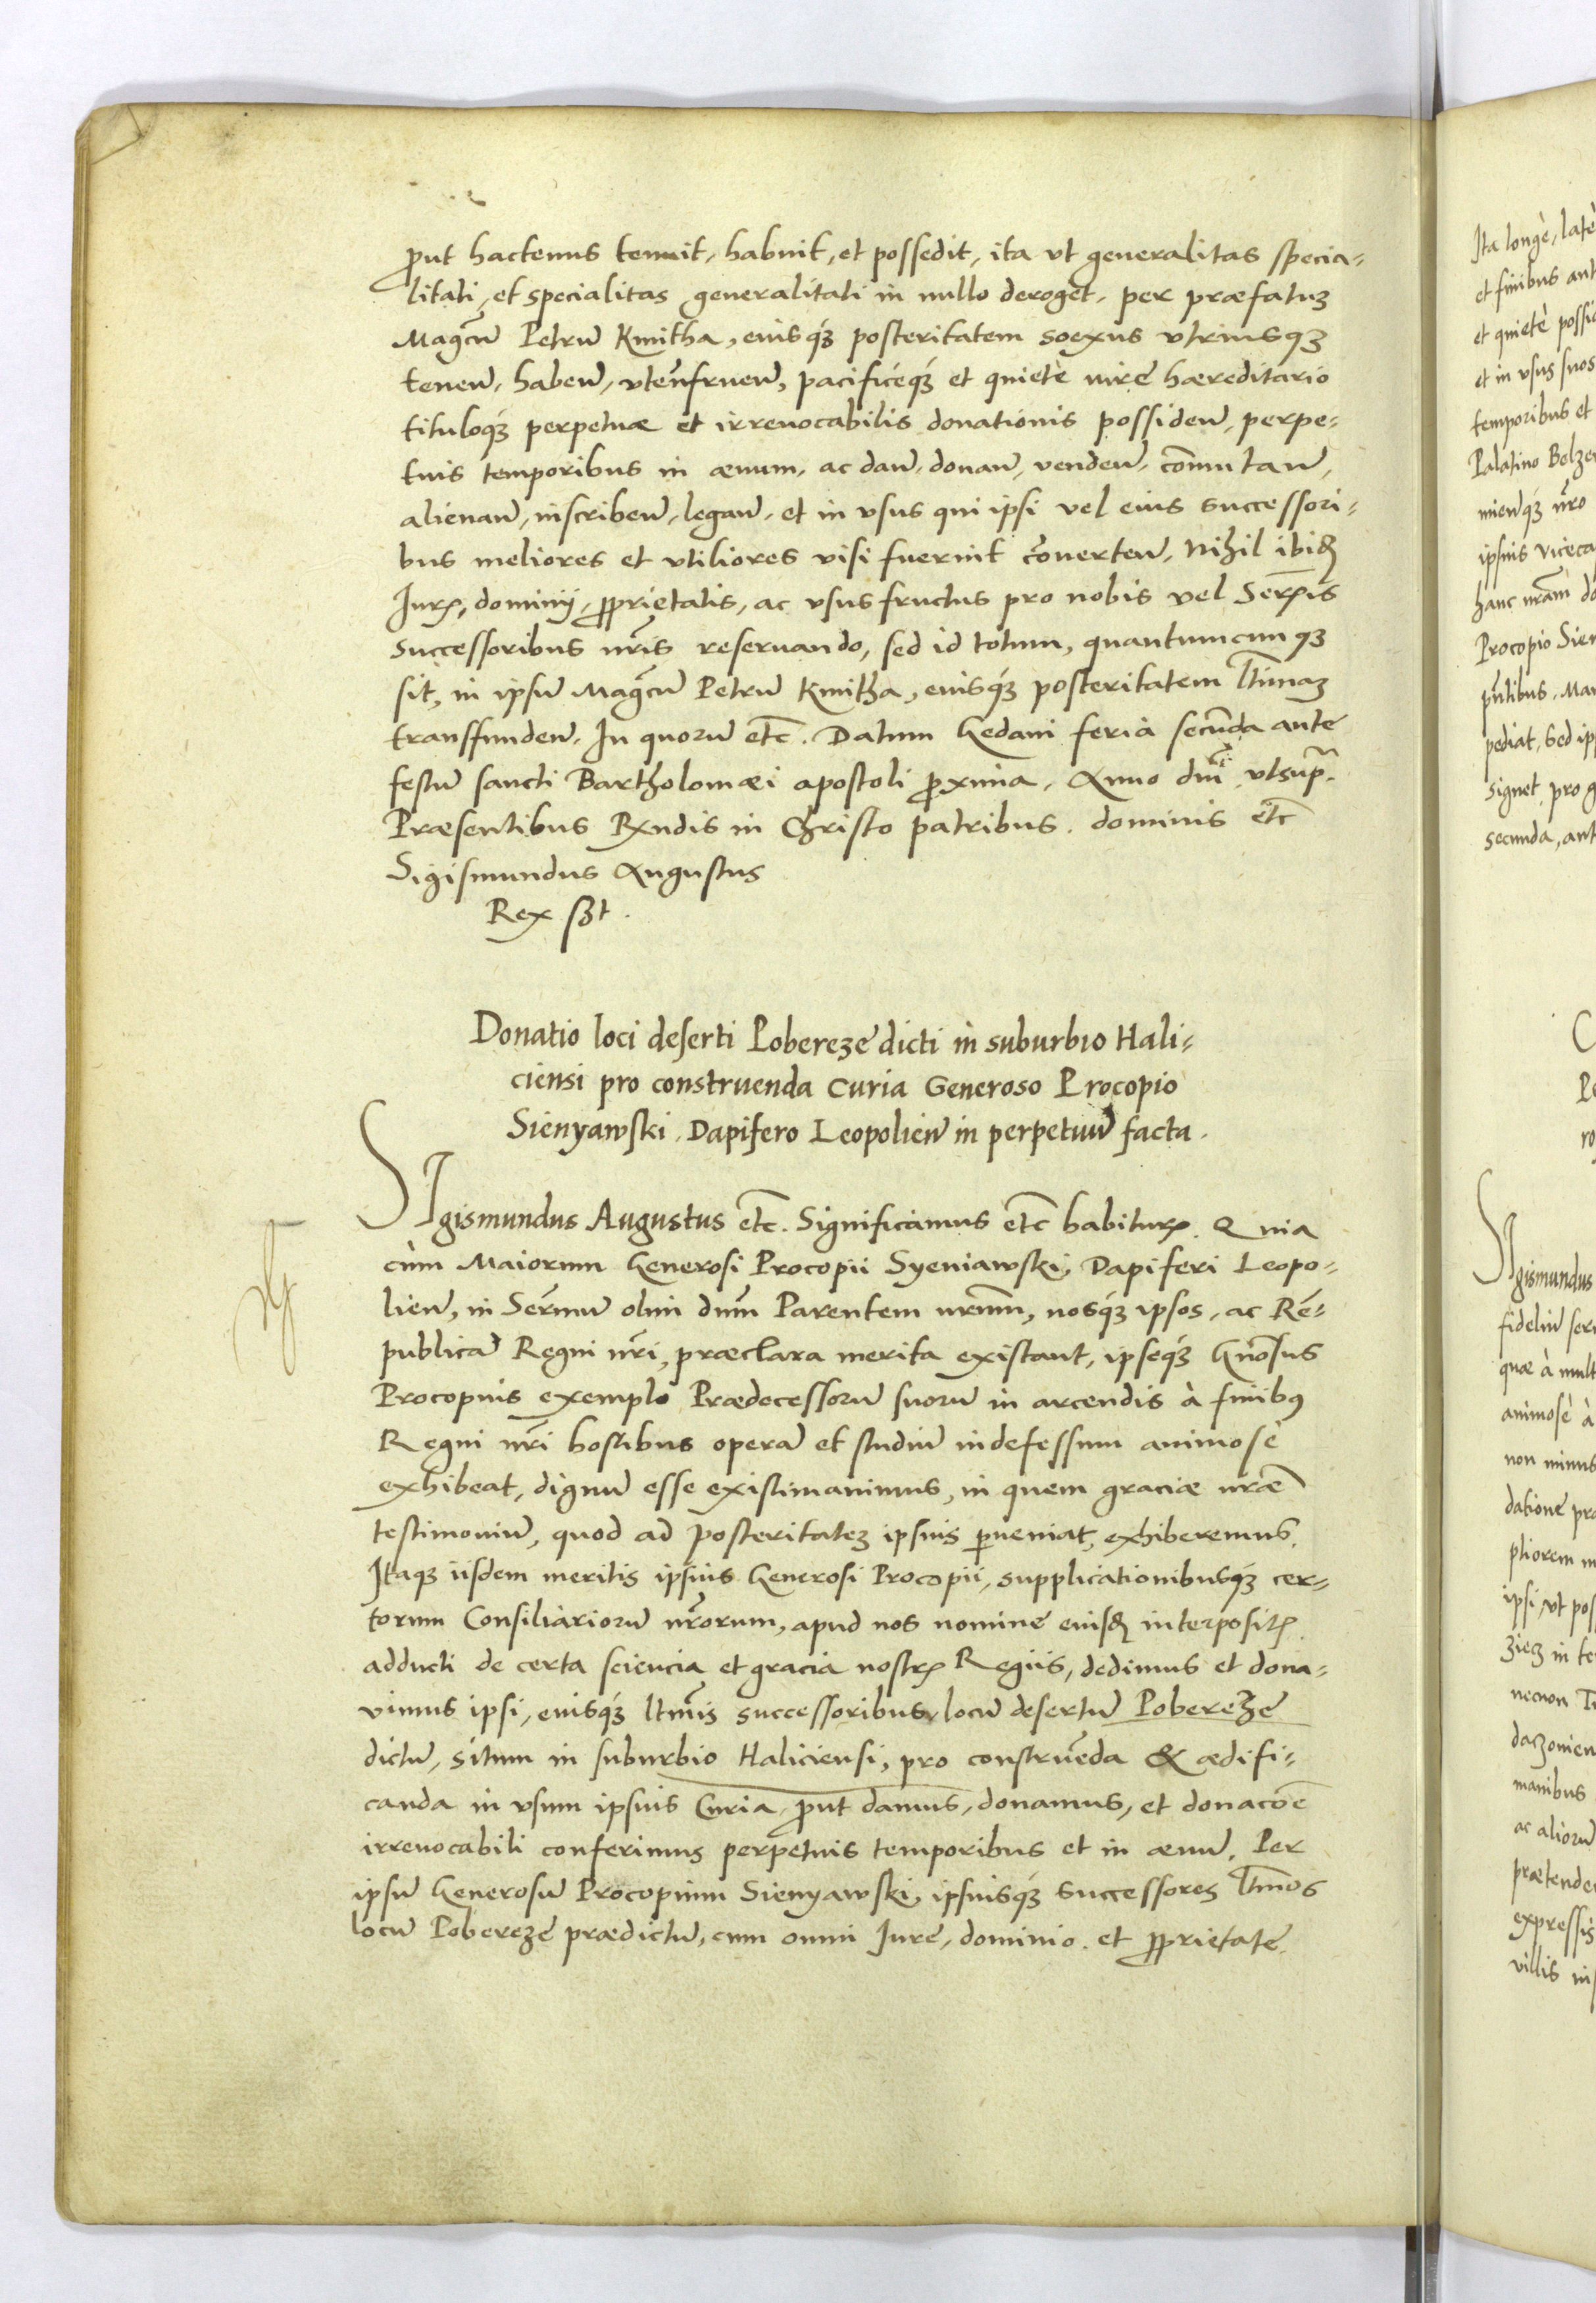 ꝓut hactenus tenuit, habuit, et possedit, ita vt generalitas specia-
litati, et specialitas generalitati in nullo deroget, per præfatuꝫ
Magcū Petrū Kmitha, eiusqꝫ posteritatem soexus vtriusqꝫ
tenen̄, haben̄, vtenfruen̄, pacificeqꝫ et quietè iure hæreditario
tituloqꝫ perpetuæ et irreuocabilis donationis possiden̄, perpe-
tuis temporibus in æuum, ac dan̄, donan̄, venden̄, com̄utan̄,
alienan̄, inscriben̄, legan̄, et in vsus qui ipsi vel eius successori-
bus meliores et vtiliores visi fuerint conuerten̄, Nihil ibid
Iurꝭ, dominij, ꝓprietatis, ac vsus fructus pro nobis vel Serꝭis
successoribus nr̄is reseruando, sed id totum, quantumcunqꝫ
sit, in ipsū Magcū Petrū Kmitha, eiusqꝫ posteritatem ltimaꝫ
transfunden̄. In quorū etc̄. Datum Gedani feria secunda ante
festū sancti Bartholomæi apostoli ꝓxima, Anno dn̄i vtsupr̄.
Præsentibus Rxndis in Christo patribus dominis etc̄
Sigismundus Augustus
Rex sszt.
Donatio loci deserti Pobereze dicti in suburbio Hali-
ciensi pro construenda Curia Generoso Procopio
Sienyawski, Dapifero Leopolien̄ in perpetuū facta.
SIgismundus Augustus etc̄. Significamus etc̄ habiturꝭ. Quia
cùm Maiorum Generosi Procopii Syeniawski, Dapiferi Leopo-
lien̄, in Serm̄um olim dnm̄ Parentem nrum̄, nosqꝫ ipsos, ac Rē-
publicā Regni nr̄i, præclara merita existant, ipseqꝫ Gn̄osus
Procopius exemplo Prædecessorū suorū in arcendis à finibꝰ
Regni nr̄i hostibus operā et studiū indefessum animosè
exhibeat, dignū esse existimauimus, in quem graciæ nr̄æ
testimoniū, quod ad posteritateꝫ ipsius ꝑueniat, exhiberemus.
Itaqꝫ iisdem meritis ipsius Generosi Procopii, supplicationibusqꝫ cer-
torum Consiliariorū nr̄orum, apud nos nomine eiusd interpositꝭ
adducti de certa sciencia et gracia nostrꝭ Regiis, dedimus et dona-
vimus ipsi, eiusqꝫ ltim̄is successoribus, locū desertū Pobereze
dictū, situm in suburbio Haliciensi, pro construēda & ædifi-
canda in vsum ipsius Curia, ꝓut damus, donamus, et donacōe
irreuocabili conferimus perpetuis temporibus et in æuū. Per
ipsū Generosū Procopium Sienyawski, ipsiusqꝫ successores ltim̄os
locū Pobereze prædictū, cum omni Iure, dominio et ꝓprietate

Ita longè, latè
et finibus ant
et quietè possi
et in vsus suos
temporibus et
Palatino Belze
nienqꝫ nr̄o
ipsius viceca
hanc nr̄am do
Procopio Sien
pn̄tibus, Man
pediat, Sed ip
signet, pro g
secunda, ant
gismundus
fideliū ser
quæ à mult
animosè à
non minus
datione præ
ptiorem m
ipsi, vt pos
ziez in te
necnon T
daczonien
manibus
ac aliorū
prætende
expressis
villis in